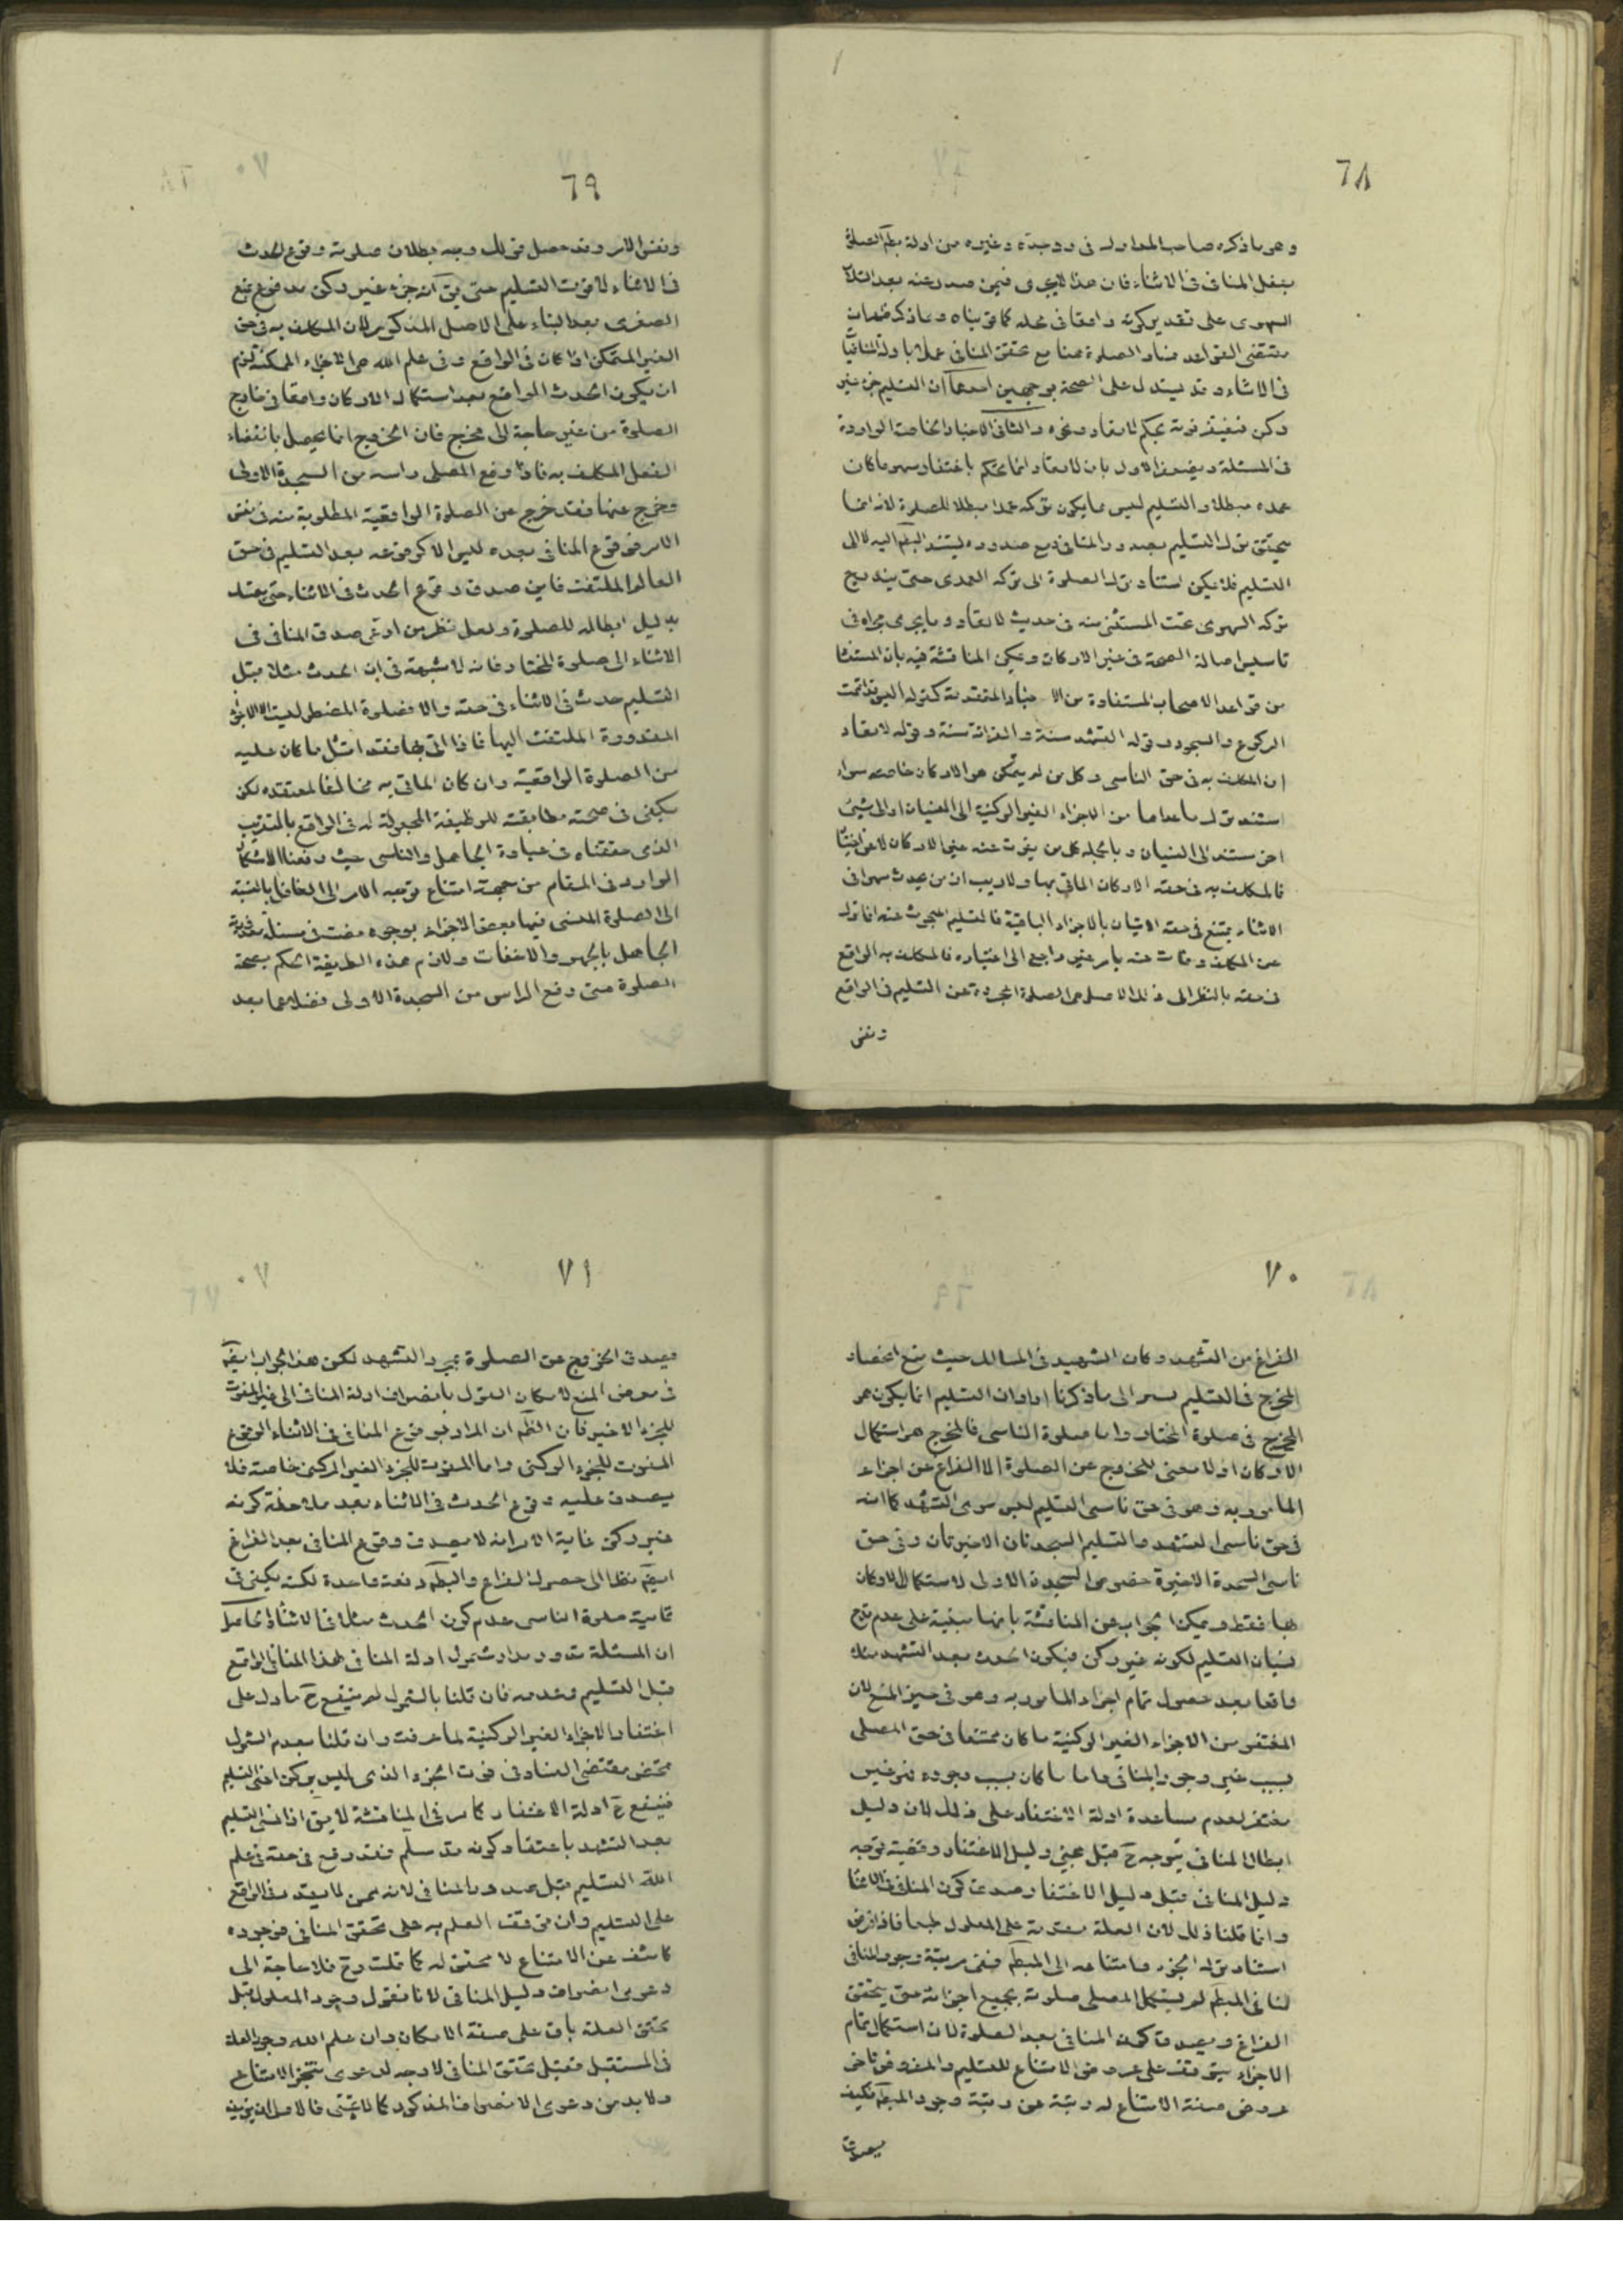 ٦٨
وهو ما ذكره صاحب المعاول في وغيره من ادلة
بفعل المنافي في الاثناء فان هذا لا يجري فيمن صدر عنه بعد
السهوى على تقدير كونه واقعا في محله كما قويناه وما ذكره
مقتضى القواعد فساد الصلوة هنا مع تحقق المنافي عملا بادلة
في الاثناء وقد يستدل على الصحة بوجهين احدهما ان التسليم جزء غير
ركن فيغتفر فوته بحكم لا تعاد ونحوه والثاني الاخبار الخاصة الواردة
في المسئلة ويضعف الاول بان لا تعاد انما يحكم باغتفار سهو ما كان
عمده مبطلا والتسليم ليس مما يكون تركه عمدا مبطلا للصلوة لانه انما
يتحقق ترك التسليم بصدور المنافي ومع صدوره يستند البطم اليه لا الى
التسليم فلا يمكن استناد ترك الصلوة الى تركه العمدى حتى يندرج
تركه السهوى تحت المستثنى منه في حديث لا تعاد وما يجري مجراه في
تاسيس اصالة الصحة في غير الاركان ويمكن المناقشة فيه بان المستفا
من قواعد الاصحاب المستفادة من الاخبار المتقدمة كقوله اليس قد اتمت
الركوع والسجود وقوله التشهد سنة والقرائة سنة وقوله لا تعاد
ان المكلف به في حق الناسي وكل من لم يتمكن هو الاركان خاصة سواء
استند ترك ما عداها من الاجزاء الغير الركنية الى النسيان او الى شيئ
اخر مستند الى النسيان وبالجملة كل من يفوت عنه غير الاركان لا
فالمكلف به في حقه الاركان الماتي بها ولا ريب ان من يحدث سهوا في
الاثناء يمتنع في حقه الاتيان بالاجزاء الباقية فالتسليم المبحوث عنه اذا ترك
عن المكلف وفات عنه بامر غير راجع الى اختياره فالمكلف به الواقع
في حقه بالنظر الى ذلك الاصل هو الصلوة المجردة عن التسليم في الواقع
ونفس
٦٩
ونفس الامر وقد حصل فرض ذلك وجه بطلان صلوته وقوع الحدث
في الاثناء لا فوت التسليم حتى يق انه جزء غير ركن مدفوع بمنع
الصغرى بعد البناء على الاصل المذكور لان المكلف به في حق
الغير المتمكن اذا كان في الواقع وفي علم الله هو الاجزاء الممكنة لزم
ان يكون الحدث الواقع بعد استكمال الاركان واقعا في خارج
الصلوة من غير حاجة الى مخرج فان الخروج انما يحصل بانقضاء
الفعل المكلف به فاذا رفع المصلي راسه من السجدة الاولى
وخرج عنها فقد خرج عن الصلوة الواقعية المطلوبة منه في نفس
الامر فوقوع المنافي بعده ليس الا كوقوعه بعد التسليم في حق
العالم الملتفت فاين صدق وقوع الحدث في الاثناء حتى يعتد
بدليل ابطاله للصلوة ولعل نظر من ادعى صدق المنافي في
الاثناء الى صلوة المختار فانه لا شبهة في ان الحدث مثلا قبل
التسليم حدث في الاثناء في حقه والا فصلوة المضطر ليست الا الاجزاء
المقدورة الملتفت اليها فاذا اتى بها فقد امتثل ما كان عليه
من الصلوة الواقعية وان كان الماتي به مخالفا لمعتقده لكن
يكفى في صحته مطابقته للوظيفة المجعولة له في الواقع بالتقريب
الذي حققناه في عبادة الجاهل والناسي حيث دفعنا الاشكال
الوارد في المقام من جهة امتناع توجيه الامر الى الغافل بالنسبة
الى الصلوة المنسى فيها بعض الاجزاء بوجوه مضت في مسئلة معذورية
الجاهل بالجهر والاخفات ولازم هذه الطريقة الحكم بصحة
الصلوة متى رفع الراس من السجدة الاولى فضلا عما بعد
٧٠
الفراغ من التشهد وكان الشهيد في المسالك حيث منع انحصار
المخرج في التسليم يسير الى ما ذكرنا اراد ان التسليم انما يكون هو
المخرج في صلوة المختار واما صلوة الناسي فالمخرج هو استكمال
الاركان اذ لا معنى للخروج عن الصلوة الا الفراغ عن اجزاء
المامور به وهو في حق ناسي التسليم ليس سوى التشهد كما انه
في حق ناسي التشهد والتسليم السجدتان الاخيرتان وفي حق
ناسي السجدة الاخيرة خصوص السجدة الاولى لاستكمال الاركان
بها فقط ويمكن الجواب عن المناقشة بانها مبنية على عدم قدح
نسيان التسليم لكونه غير ركن فيكون الحدث بعد التشهد مثلا
واقعا بعد حصول تمام اجزاء المامور به وهو في حيز المنع لان
المغتفر من الاجزاء الغير الركنية ما كان ممتنعا في حق المصلي
بسبب غير وجود المنافي واما ما كان بسبب وجوده فهو غير
مغتفر لعدم مساعدة ادلة الاغتفار على ذلك لان دليل
ابطال المنافي يتوجه ح قبل مجيئ دليل الاغتفار وقضية توجه
دليل المنافي قبل دليل الاغتفار صدق كون المنافي في الاثنا
وانما قلنا ذلك لان العلة متقدمة على المعلول طبعا فاذا فرض
استناد ترك الجزء وامتناعه الى المبطم ففي مرتبة وجود المنافي
لنا في المبطم لم يستكمل المصلي صلوته بجميع اجزائه حتى يتحقق
الفراغ ويصدق كون المنافي بعد الصلوة لان استكمال تمام
الاجزاء يتوقف على عروض الامتناع للتسليم والمفروض تاخر
عروض صفة الامتناع له رتبة عن رتبة وجود المبطم فكيف
يصدق
٧١
يصدق الخروج عن الصلوة بمجرد التشهد لكن هذا الجواب ايضم
في معرض المنع لامكان القول بانصراف ادلة المنافي الى غير المفوت
للجزء الاخير فان الظم ان المراد بوقوع المنافي في الاثناء الوقوع
المفوت للجزء الركني واما المفوت للجزء الغير الركني خاصة فلا
يصدق عليه وقوع الحدث في الاثناء بعد ملاحظة كونه
غير ركن غاية الامر انه لا يصدق وقوع المنافي بعد الفراغ
ايضم نظرا الى حصول الفراغ والبطم دفعة واحدة لكنه يكفي في
تمامية صلوة الناسي عدم كون الحدث مثلا في الاثناء والحاصل
ان المسئلة تدور مدار شمول ادلة المنافي لهذا المنافي الواقع
قبل التسليم وعدمه فان قلنا بالشمول لم ينفع ح ما دل على
اغتفار الاجزاء الغير الركنية لما عرفت وان قلنا بعدم الشمول
تمحض مقتضى الفساد في فوت الجزء الذي ليس بركن اعني التسليم
فينفع ح ادلة الاغتفار كما مر في المناقشة لا يق اذا نسى التسليم
بعد التشهد باعتقاد كونه قد سلم فقد وقع في حقه في علم
الله التسليم قبل صدور المنافي لانه ممن لا يقتدر في الواقع
على التسليم وان توقف العلم به على تحقق المنافي فوجوده
كاشف عن الامتناع لا محقق له كما قلت وح فلا حاجة الى
دعوى انصراف دليل المنافي لانا نقول وجود المعلول قبل
تحقق العلة باق على صفة الامكان وان علم الله وجود العلة
في المستقبل فقبل تحقق المنافي لا وجه لدعوى تنجز الامتناع
ولا بد من دعوى الانصراف المذكور كما لا يخفى فالاولى ان يزيف